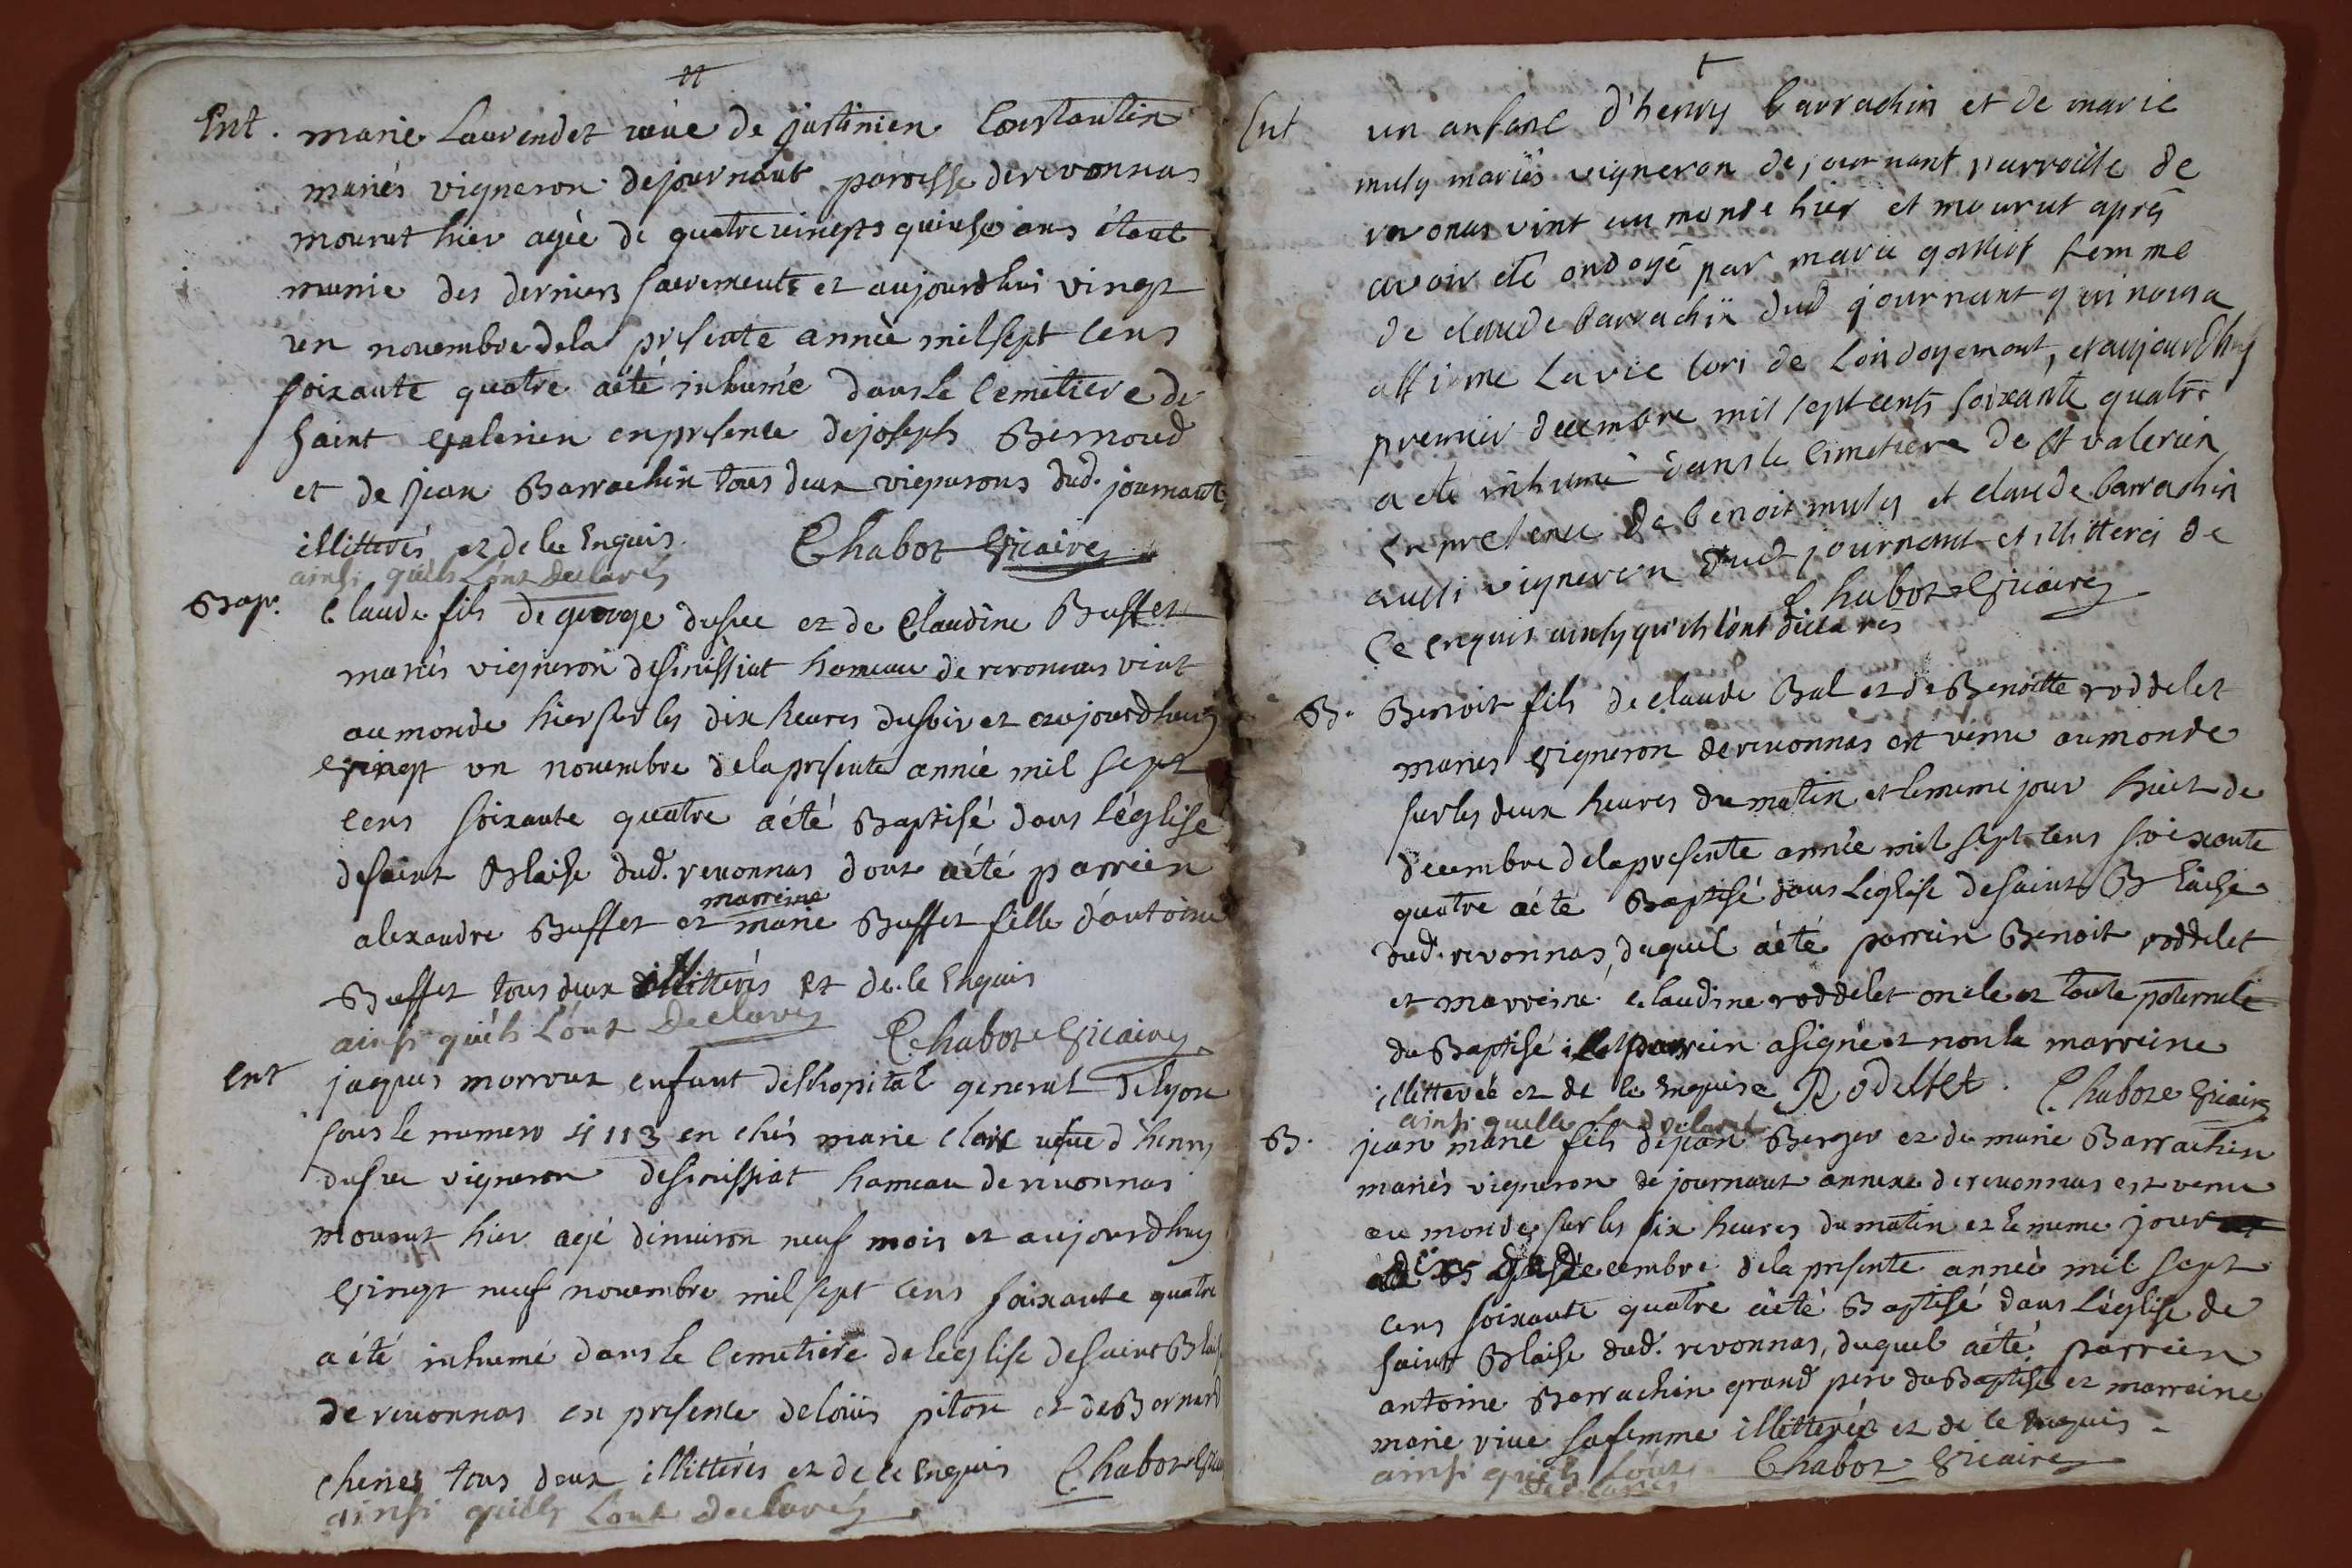 Ent. marie Laurendet veuve de justinien Constantin
mariés vigneron de journant paroisse de revonnas
mourut hier agée de quatre vingts quinse ans étant
munie des derniers sacrements et aujourdhui vingt
un novembre de la presente année mil sept cens
soixante quatre a été inhumée dans le cemetiere de
saint Valerien en presence de joseph Bernoud
et de jean Barrachin tous deux vignerons dud. journant
illitterés et de ce Enquis Chabot Vicaire
ainsi qu'ils L'ont Declarés
Bap. Claude fils de george dufue et de Claudine Buffet
mariés vigneron de sinissiat hameau de revonnas vint
au monde hier sur les dix heures du soir et aujourdhuy
Vingt un novembre de la presente année mil sept
cens soixante quatre a été Baptisé dans l'église
de saint Blaise dud. revonnas dont a été parrein
marreine
alexandre Buffet et marie Buffet fille d'antoine
Buffet tous deux illitterés et de ce Enquis
ainsi qu'ils L'ont Declarés Chabot Vicaire
Ent jaques morroux enfant de l'hopital general de lyon
sous le numero 4113 en chés marie claire d'henry
dufue vigneron de sinissiat hameau de revonnas
mourut hier agé d'environ neuf mois et aujourdhuy
Vingt neuf novembre mil sept cens soixante quatre
a été inhumé dans le cemetiere de l'eglise de saint Blaise
de revonnas en presence de louis piton et de Bernard
chenes tous deux illitterés et de ce Enquis Chabot Vicaire
ainsi qu'ils L'ont Declarés
Ent un anfant d'henry barrachin et de marie
muly mariés vigneron de journant parroisse de
revonas vint au monde hier et mourut aprés
avoir eté ondoyé par marie femme
de claude barrachin dud journant qui nous a
affirmé la vie lors de Londoyemant, et aujourdhuy
premier decembre mil sept cents soixante quatre
a eté inhumé dans le cimetiere de st valerien
en presence de benoit muly et claude barrachin
aussi vigneron dud journant et illitterés de
Chabot Vicaire
Ce enquis ainsy qu'ils l'ont déclarés
B. Benoit fils de claude Bal et de Benoitte roddelet
mariés Vigneron de revonnas est venu au monde
sur les deux heures du matin et le meme jour huit de
decembre de la presente année mil sept cens soixante
quatre a été Baptisé dans L'eglise de saint Blaise
dud. revonnas, duquel a été parrein Benoit roddelet
et marreine claudine roddelet oncle et tante paternele
du Baptisé le parrein a signé et non la marreine
illitterée et de ce Enquise Rodellet. Chabot Vicaire
ainsi quelle La declaré
B. jean marie fils de jean Berger et de marie Barrachin
mariés vigneron de journant annexe de revonnas est venu
au monde sur les six heures du matin et le meme jour
dix decembre de la presente année mil sept
cens soixante quatre a été Baptisé dans L'église de
saint Blaise dud. revonnas, duquel a été parrein
antoine Barrachin grand pere du Baptisé et marreine
marie sa femme illitterés et de ce Enquis
ainsi qu'ils L'ont Chabot Vicaire
declarés